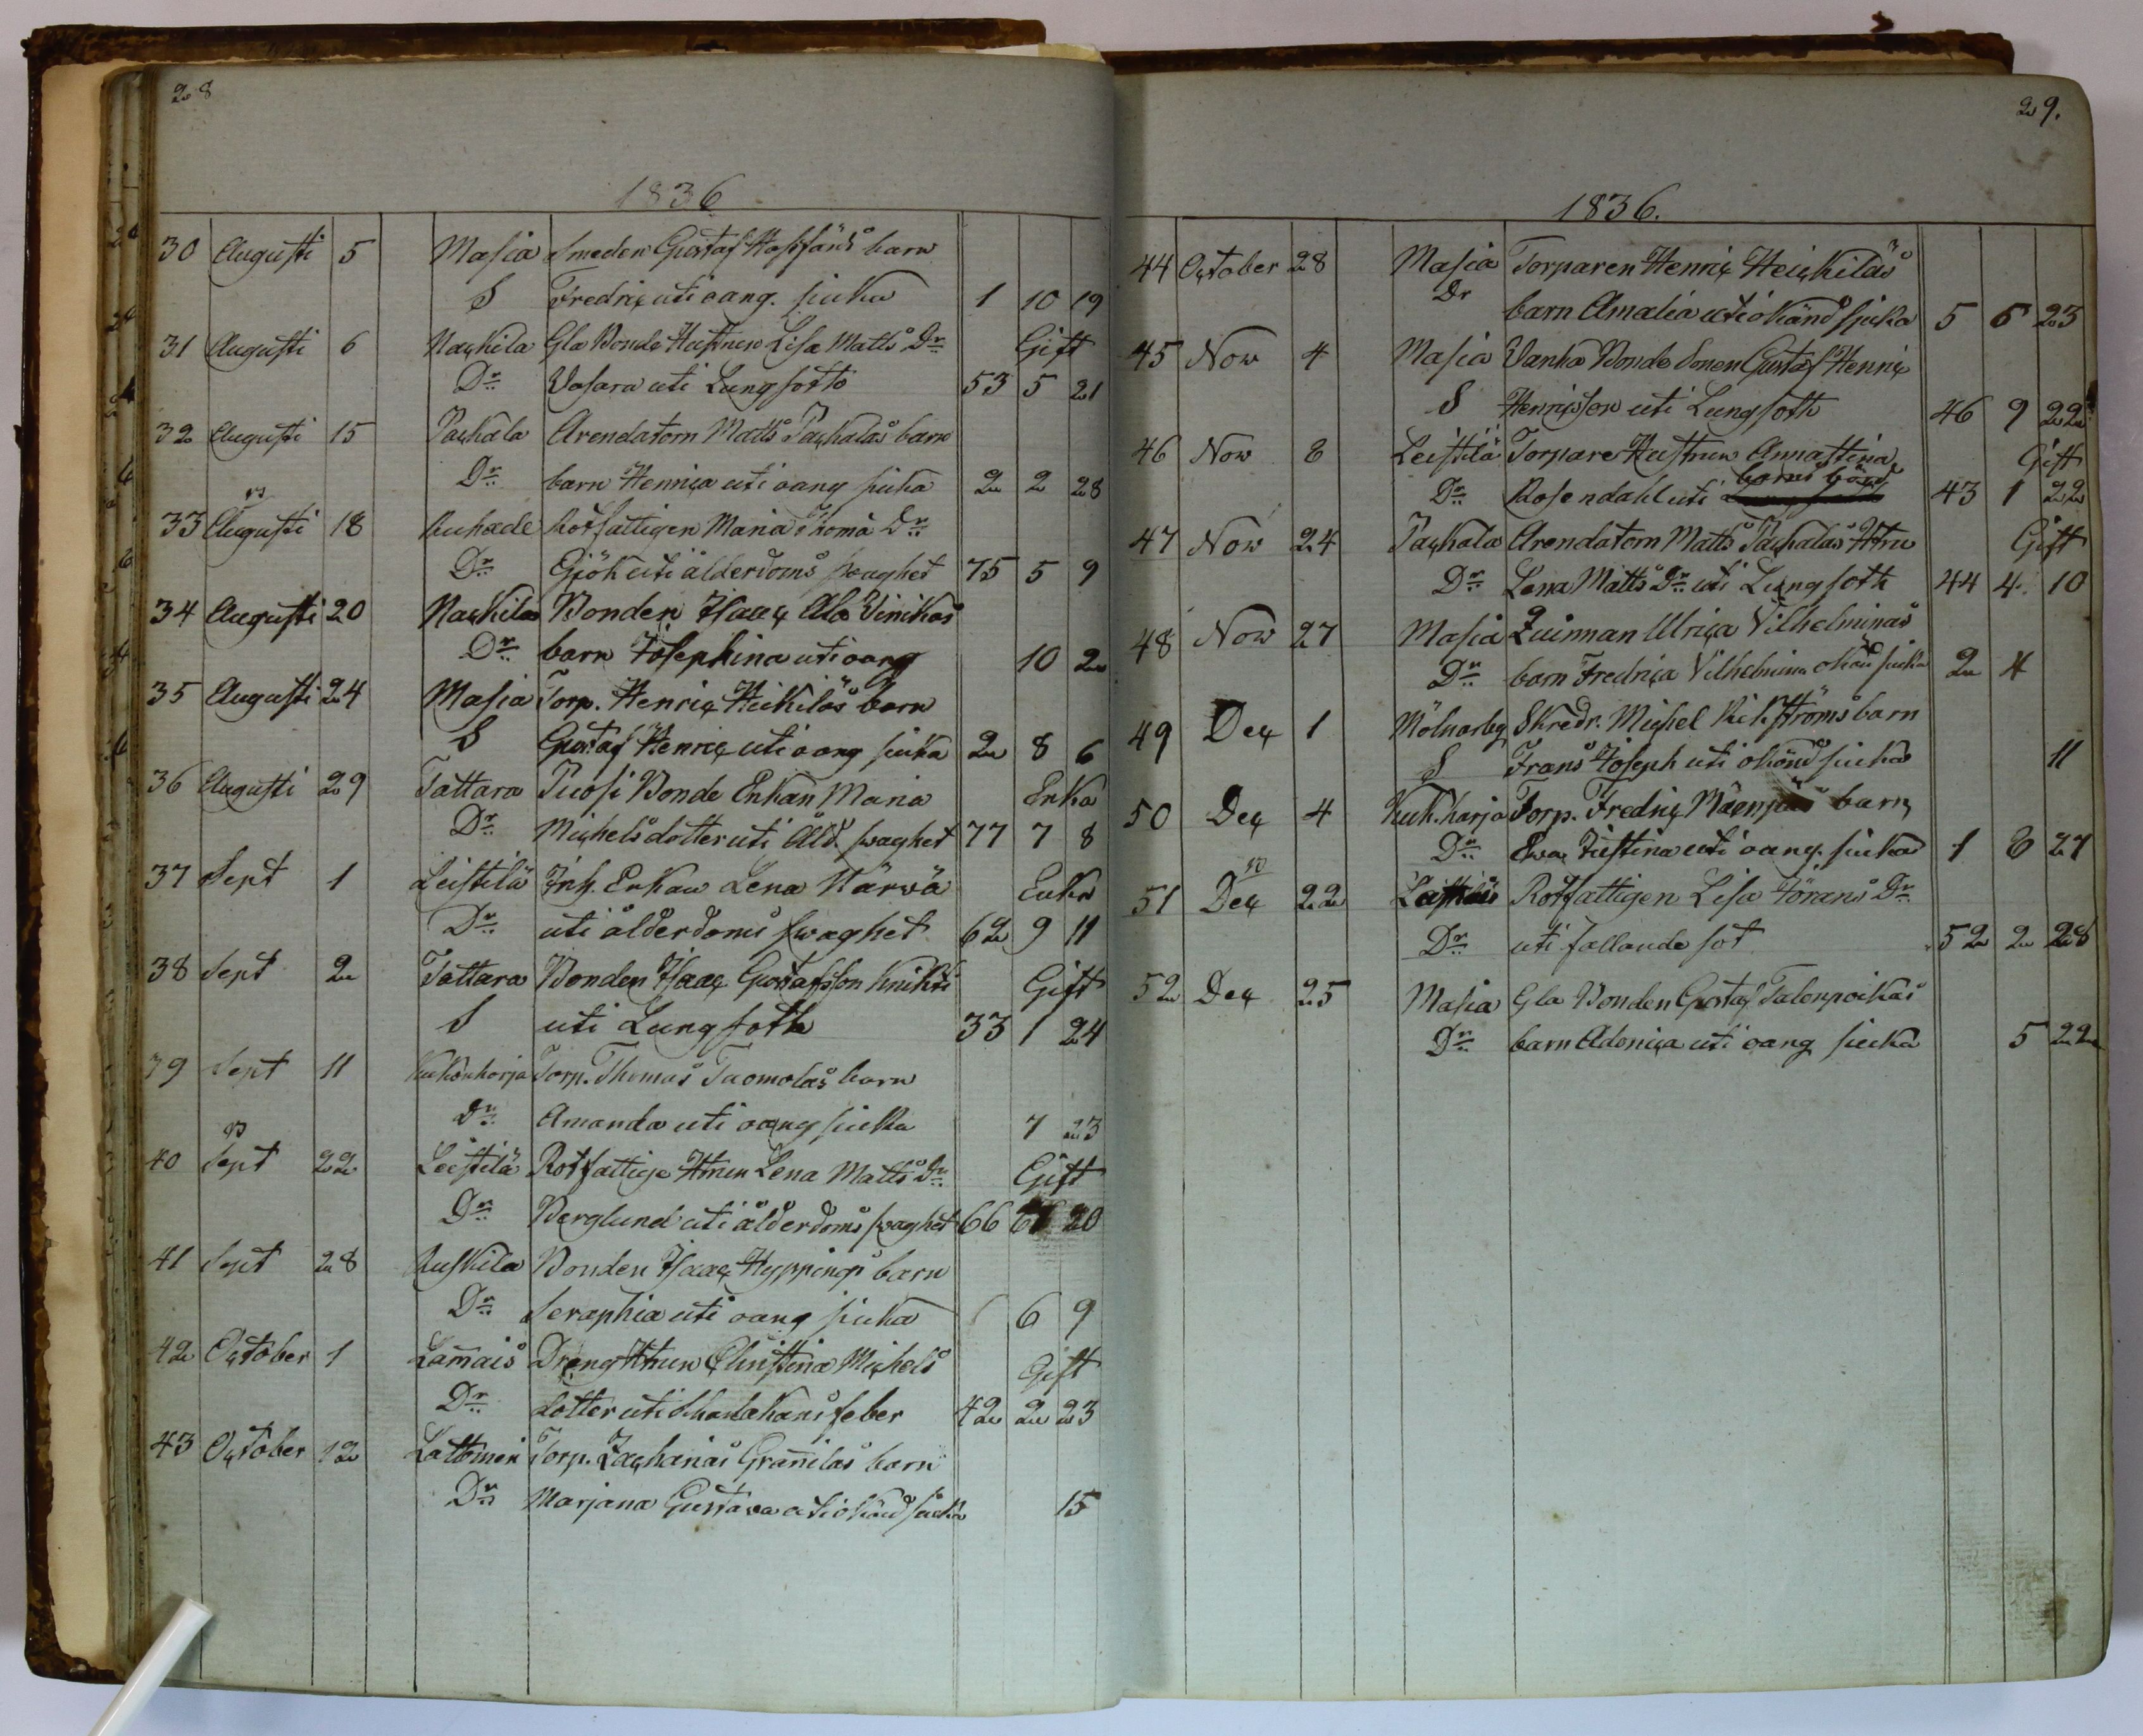 28
1836
30 Augusti 5 Masia Smeden Gustaf barn
S Fredric uti oang. siuka 1 10 19
31 Augusti 6 Nackila Gla Bonde Hustrun Lisa Matts Dr Gift
Dr Vasara uti Lungsotte 53 5 21
32 Augusti 15 Packala Arendatorn Matts Packalas barn
Dr barn Henrica uti oang siuka 2 2 28
33 Augusti 18 Rotfattigen Maria Dr
Dr Gjök uti ålderdoms swaghet 75 5 9
34 Augusti 20 Nackila Bonden Isaac Ala Vinikas
Dr barn Josephina uti oang 10 2
35 Augusti 24 Masia Torp. Henric Heikiläs barn
S Gustaf Henric uti oang siuka 2 8 6
36 Augusti 29 Tattara Puosi Bonde Enkan Maria Enka
Dr Michelsdotter uti Åld. swaghet 77 7 8
37 Sept 1 Leistilä Inh. Enkan Lena Närwä Enka
Dr uti ålderdoms swaghet 62 9 11
38 Sept 2 Tattara Bonden Isaac Gustafsson Knihti Gift
S uti Lungsoth 33 1 24
39 Sept 11 Kukonharja Torp. Thomas Tuomolas barn
Dr Amanda uti oang siuka 7 23
40 Sept 22 Leistilä Rotfattige Htrun Lena Matts Dr Gift
Dr Berglund uti ålderdoms swaghet 66 20
41 Sept 28 Ruskila Bonden Isaac Hyppings barn
Dr Seraphia uti oang siuka 6 9
42 October 1 Lammais Dreng Htrun Christina Michels Gift
Dr dotter uti Skarlakans feber 42 2 23
43 October 12 Lattomeri Torp. Zacharias Grannilas barn
Dr Marjana Gustava uti okänd siuka 15
29.
1836.
44 October 28 Masia Torparen Henric Heickiläs
Dr barn Amalia uti okänd siuka 5 6 23
45 Now 4 Masia Vanha Bonde Sonen Gustaf Henric
S Henricson uti Lungsoth 46 9 22
46 Now 8 Leistilä Torpare Hustrun Annastina Gift
barns börd
Dr Rosendahl uti 43 1 22
47 Now 24 Packala Arendatorn Matts Packalas Htru Gift
Dr Lena Matts Dr uti Lungsoth 44 4 10
48 Now 27 Masia Quinnan Ulrica Vilhelminas
Dr barn Fredrica Vilhelmina okänd siuka 2 4
49 Dec 1 Mölnarby Skredr. Michel Rikströms barn
S Frans Joseph uti okönd siuka 11
50 Dec 4 Kuk.harja Torp. Fredric Mäenpääs barn
Dr Ewa Justina uti oang. siuka 1 8 27
51 Dec 22 Rotfattigen Lisa Görans Dr
Dr uti fallande sot 52 2 28
52 Dec 25 Masia Gla Bonden Gustaf Talonpoikas
Dr barn Adonica uti oang siuka 5 22